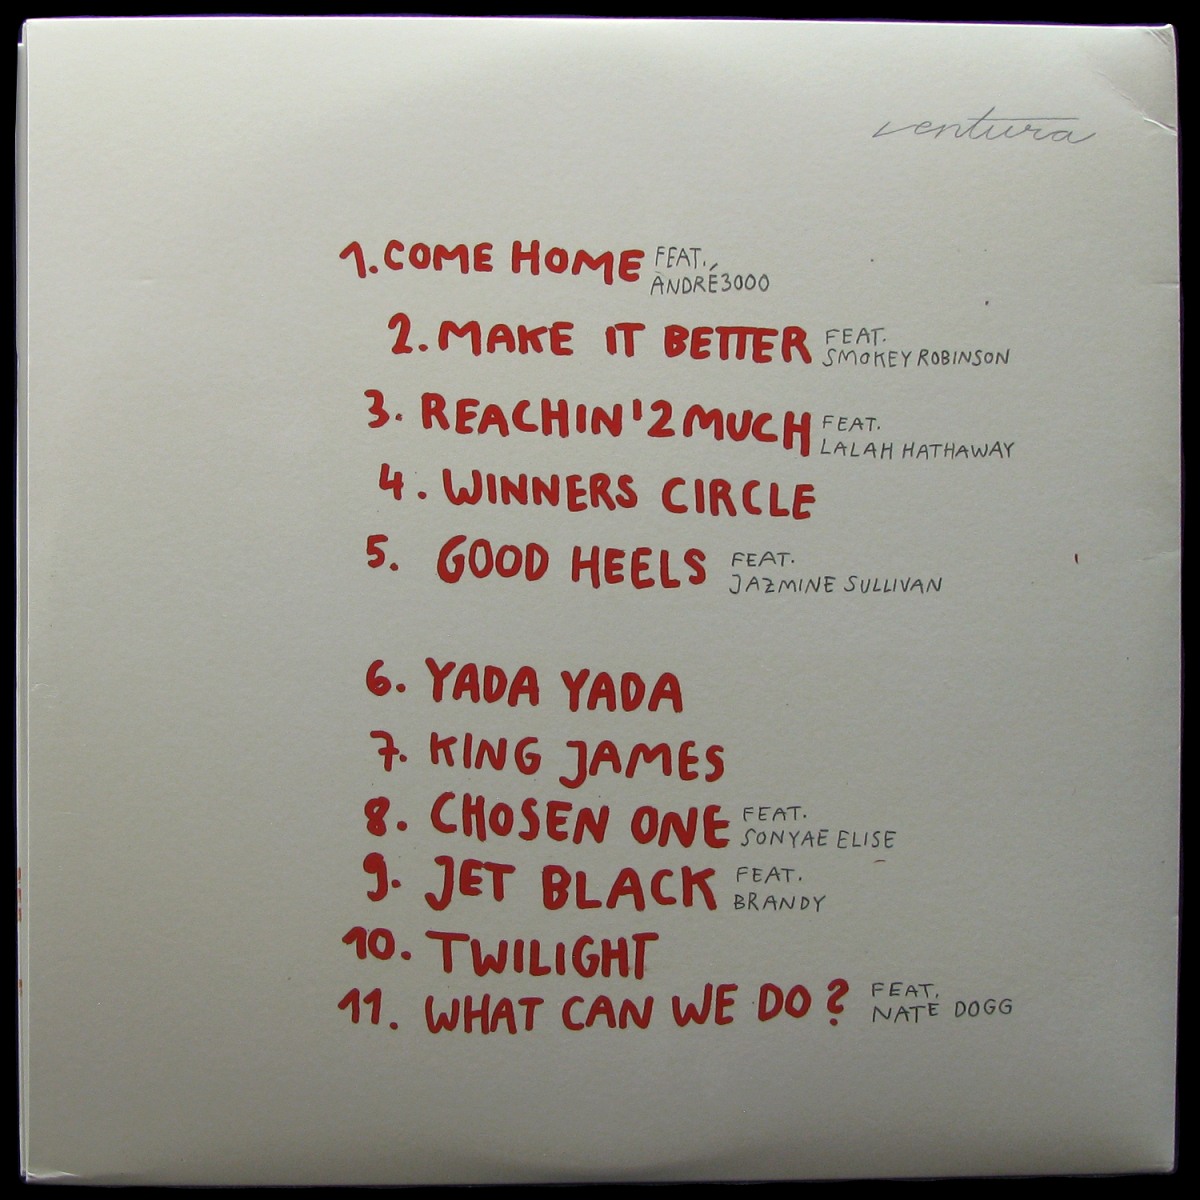 ventura
1. COME HOME FEAT.
ANDRÉ3000
2. MAKE IT BETTER FEAT.
SMOKEY ROBINSON
3. REACHIN' 2 MUCH FEAT.
LALAH HATHAWAY
4. WINNERS CIRCLE
5. GOOD HEELS FEAT.
JAZMINE SULLIVAN
6. YADA YADA
7. KING JAMES
8. CHOSEN ONE FEAT.
SONYAE ELISE
9. JET BLACK FEAT.
BRANDY
10. TWILIGHT
11. WHAT CAN WE DO? FEAT.
NATE DOGG